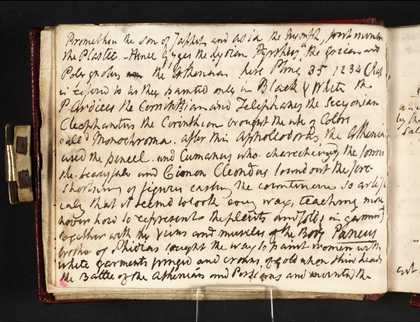 Prometheus the son of Japhet and Asia the Nymph, first invented
the Plastic - Hence Gyges the Lydian, Pyrrhus, the Grecian and
Polygnotus the Athenian here Pliny 35 1234 Chap
is referred to as they painted only in Black & White the
P Ardices the Corinthian and Telephanes the Secyonian
Cleophantus the Corinthian brought the use of Color
call'd Monochroma. after this Apholodorus, the Athenian
used the pencel and Eumarus who charecterized the forms
the sexes, and Cimon Cleondus found out the fore
shortning of figures casting the countenance so artifi
cialy that it seemd to look every way, teaching more
over how to represent the pleits and folds in garments
together with the Veins and muscles of the Body Paneus
brother of Phidias taught the way to paint women with
white garments fringed and crowns of gold upon their heads
the Battle of the Athenians and Persians and invented the